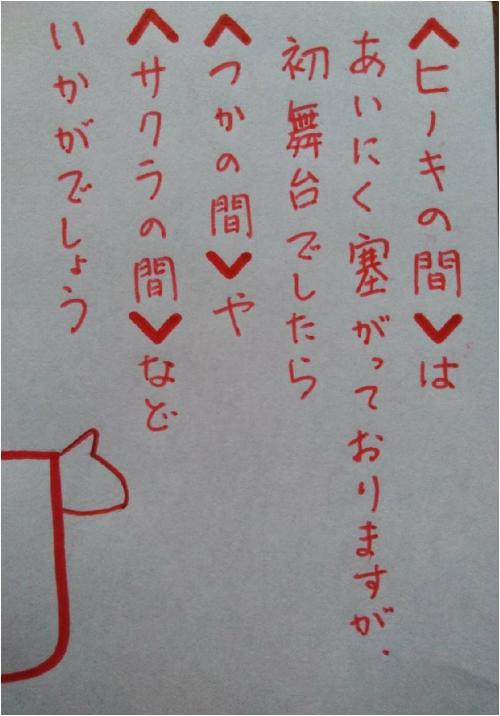 〈ヒノキの間〉は
あいにく塞がっておりますが、
初舞台でしたら
〈つかの間〉や
〈サクラの間〉など
いかがでしょう